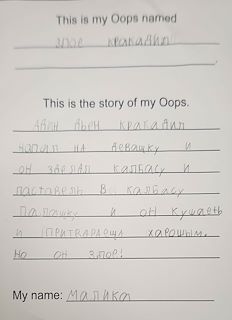 This is my Oops named
злое кракадил
This is the story of my Oops.
аден ден кракадил
напал на девашку и
он зделал калбасу и
паставель в калбасу
палашку и он кушаеть
и притвараеца харошым.
но он злое!
My name: Малика